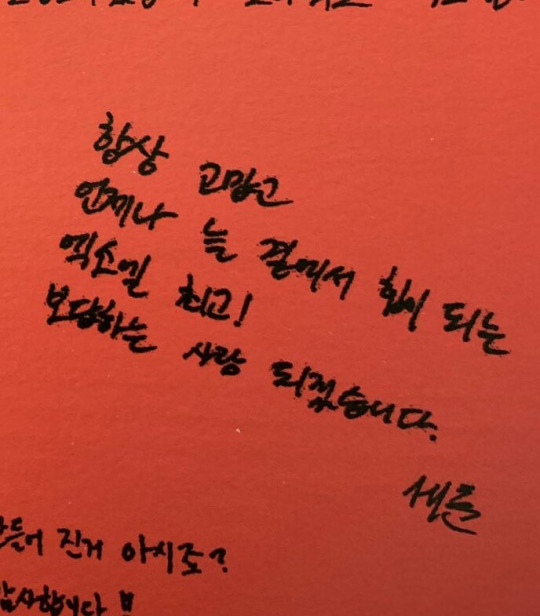 항상 고맙고
언제나 늘 곁에서 힘이 되는
엑소엘 최고!
보답하는 사랑 되겠습니다.
세훈
들어 진거 아시죠?
감사합니다